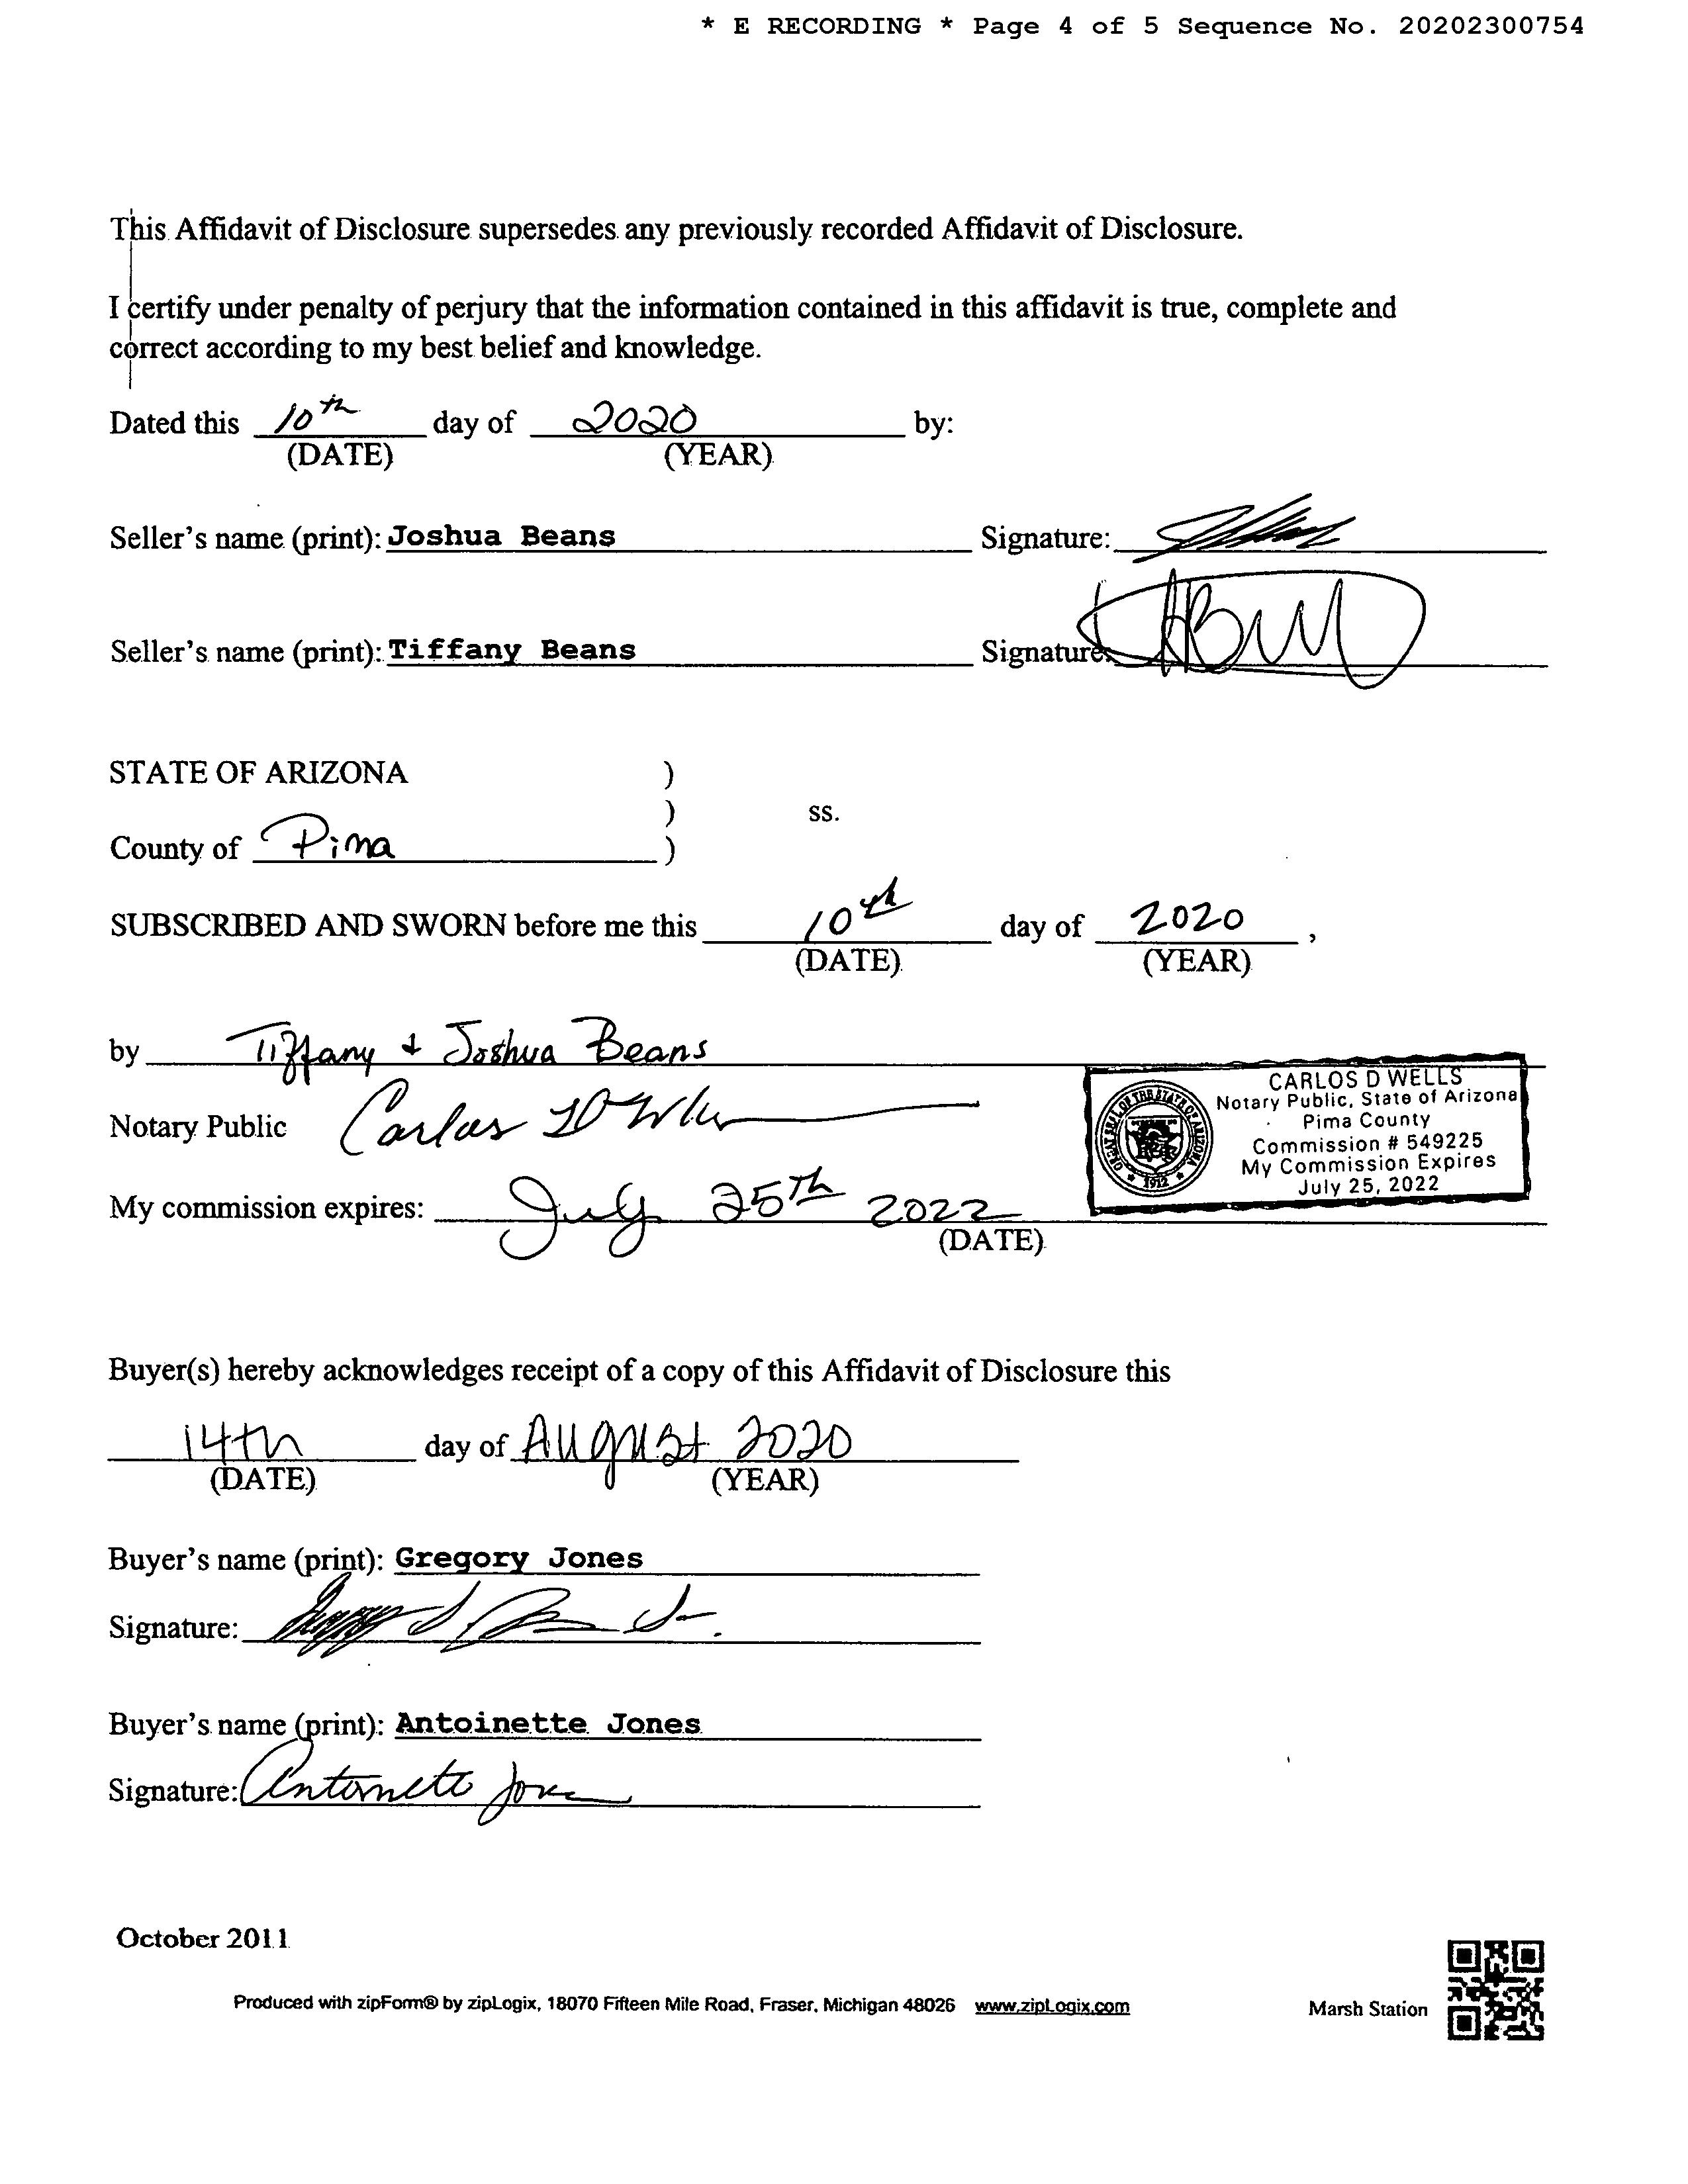 * E RECORDING * Page 4 of 5 Sequence No. 20202300754
This Affidavit of Disclosure supersedes any previously recorded Affidavit of Disclosure.
I certify under penalty of perjury that the information contained in this affidavit is true, complete and
correct according to my best belief and knowledge.
Dated this 10th day of 2020 by:
(DATE) (YEAR)
Seller's name (print): Joshua Beans Signature:
Seller's name (print): Tiffany Beans Signature:
STATE OF ARIZONA )
) ss.
County of Pima )
SUBSCRIBED AND SWORN before me this 10th day of 2020 ,
(DATE) (YEAR)
by Tiffany + Joshua Beans
CARLOS D WELLS
Notary Public, State of Arizona
Pima County
Commission # 549225
My Commission Expires
July 25, 2022
GREAT SEAL OF THE STATE OF ARIZONA
1912
Notary Public Carlos D Wells
My commission expires: July 25th 2022
(DATE)
Buyer(s) hereby acknowledges receipt of a copy of this Affidavit of Disclosure this
14th day of August 2020
(DATE) (YEAR)
Buyer's name (print): Gregory Jones
Signature:
Buyer's name (print): Antoinette Jones
Signature: Antoinette Jones
October 2011
Produced with zipForm® by zipLogix, 18070 Fifteen Mile Road, Fraser, Michigan 48026 www.zipLogix.com Marsh Station